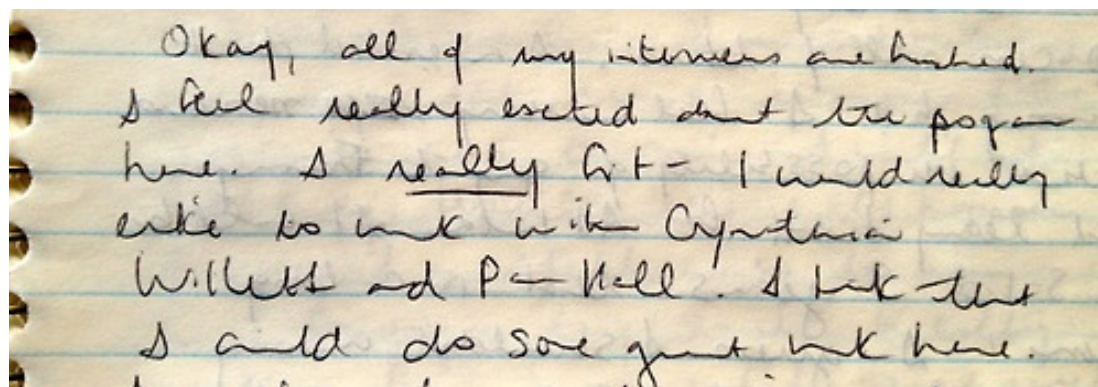 Okay, all of my interviews are finished.
I feel really excited about the program
here. I really fit – I would really
like to work with Cynthia
Willett and Pam Hall. I think that
I could do some great work here.